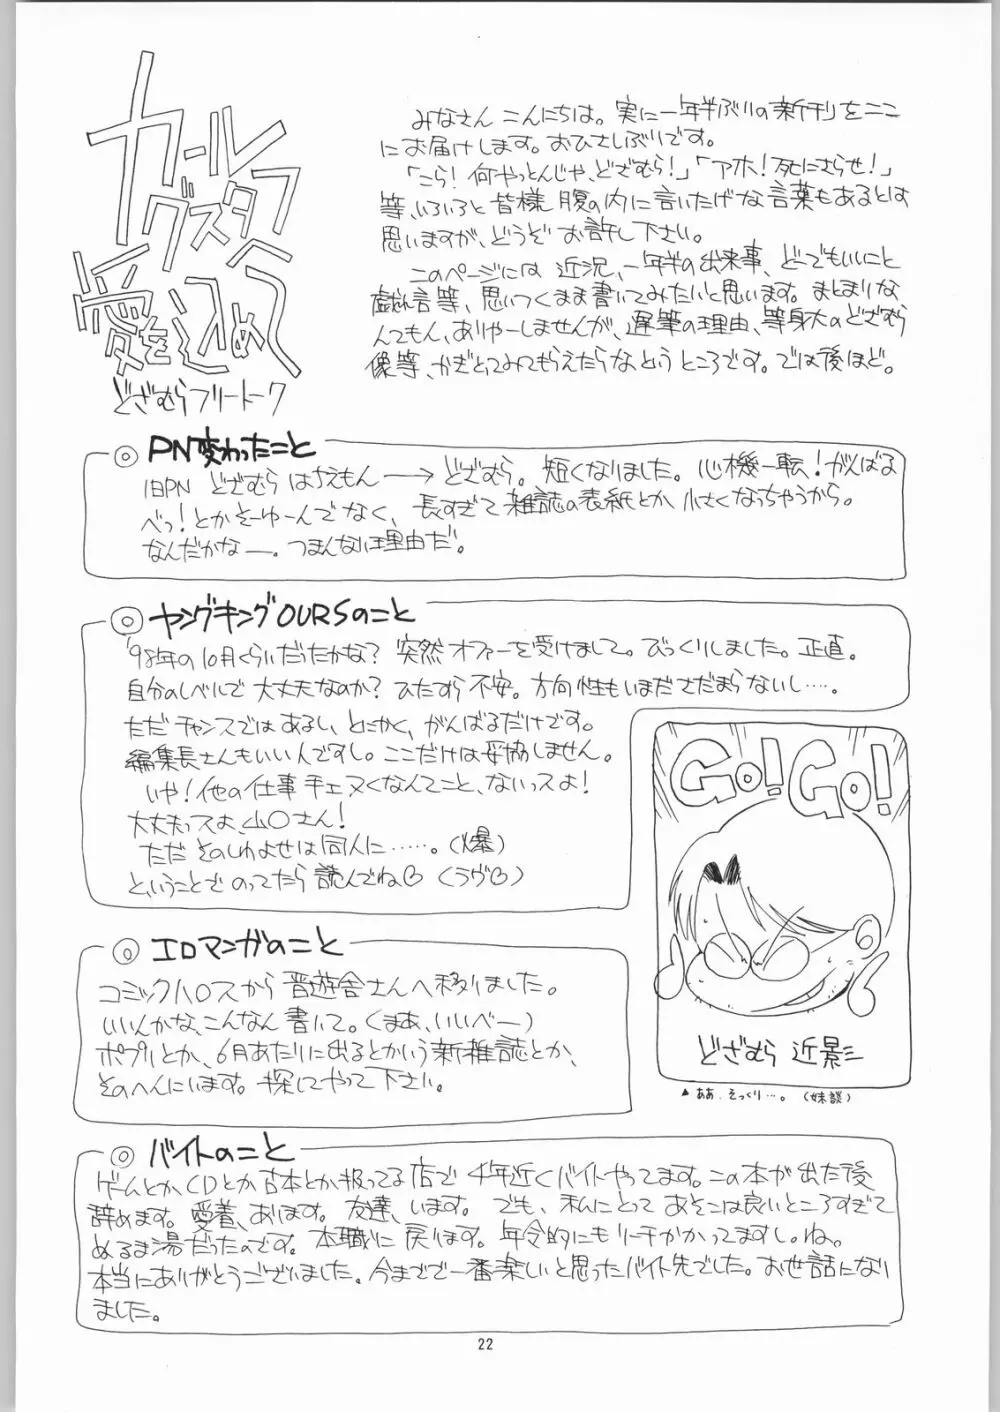 カール
グスタフへ
愛を込めて
どざむらフリートーク
みなさん こんにちは。実に一年半ぶりの新刊をここ
にお届けします。おひさしぶりです。
「こら！何やっとんじゃ、どざむら！」「アホ！死にさらせ！」
等、いろいろと皆様 腹の内に言いたげな言葉もあるとは
思いますが、どうぞ お許し下さい。
このページには 近況、一年半の出来事、どーでもいいこと
戯れ言等、思いつくまま書いてみたいと思います。まとまりな
んてもん、ありゃーしませんが、遅筆の理由、等身大のどざむら
像等、かぎとってみてもらえたらなというところです。では後ほど。
◎ PN変わったこと
旧PN どざむらはちえもん ―→ どざむら。短くなりました。心機一転！がんばる
べっ！とかそーゆーんでなく、長すぎて雑誌の表紙とか小さくなっちゃうから。
なんだかなー。つまんない理由だ。
◎ ヤングキングOURSのこと
'98年の10月くらいだったかな？突然オファーを受けまして。びっくりしました。正直。
自分のレベルで大丈夫なのか？ひたすら不安。方向性もいまださだまらないし‥‥。
ただチャンスではあるし、とにかく、がんばるだけです。
編集長さんもいい人ですし。ここだけは妥協しません。
いや！他の仕事手ェヌくなんてこと、ないっスよ！
大丈夫っスよ、山〇さん！
ただ そのしわよせは同人に‥‥‥。(爆)
と、いうことで のってたら読んでね♡ (ラヴ♡)
Go! Go!
どざむら 近影
▲ ああ、そっくり…。(妹談)
◎ エロマンガのこと
コミックハウスから晋遊舎さんへ移りました。
いいんかな、こんなん書いて。(まあ、いいべー)
ポプリとか、6月あたりに出るとかいう新雑誌とか、
そのへんにいます。探してやって下さい。
◎ バイトのこと
ゲームとかCDとか古本とか扱ってる店で4年近くバイトやってます。この本が出た後
辞めます。愛着、あります。友達、います。でも、私にとって あそこは良いところすぎて
ぬるま湯だったのです。本職に戻ります。年令的にもリーチかかってますし。ね。
本当にありがとうございました。今までで一番楽しいと思ったバイト先でした。お世話になり
ました。
22